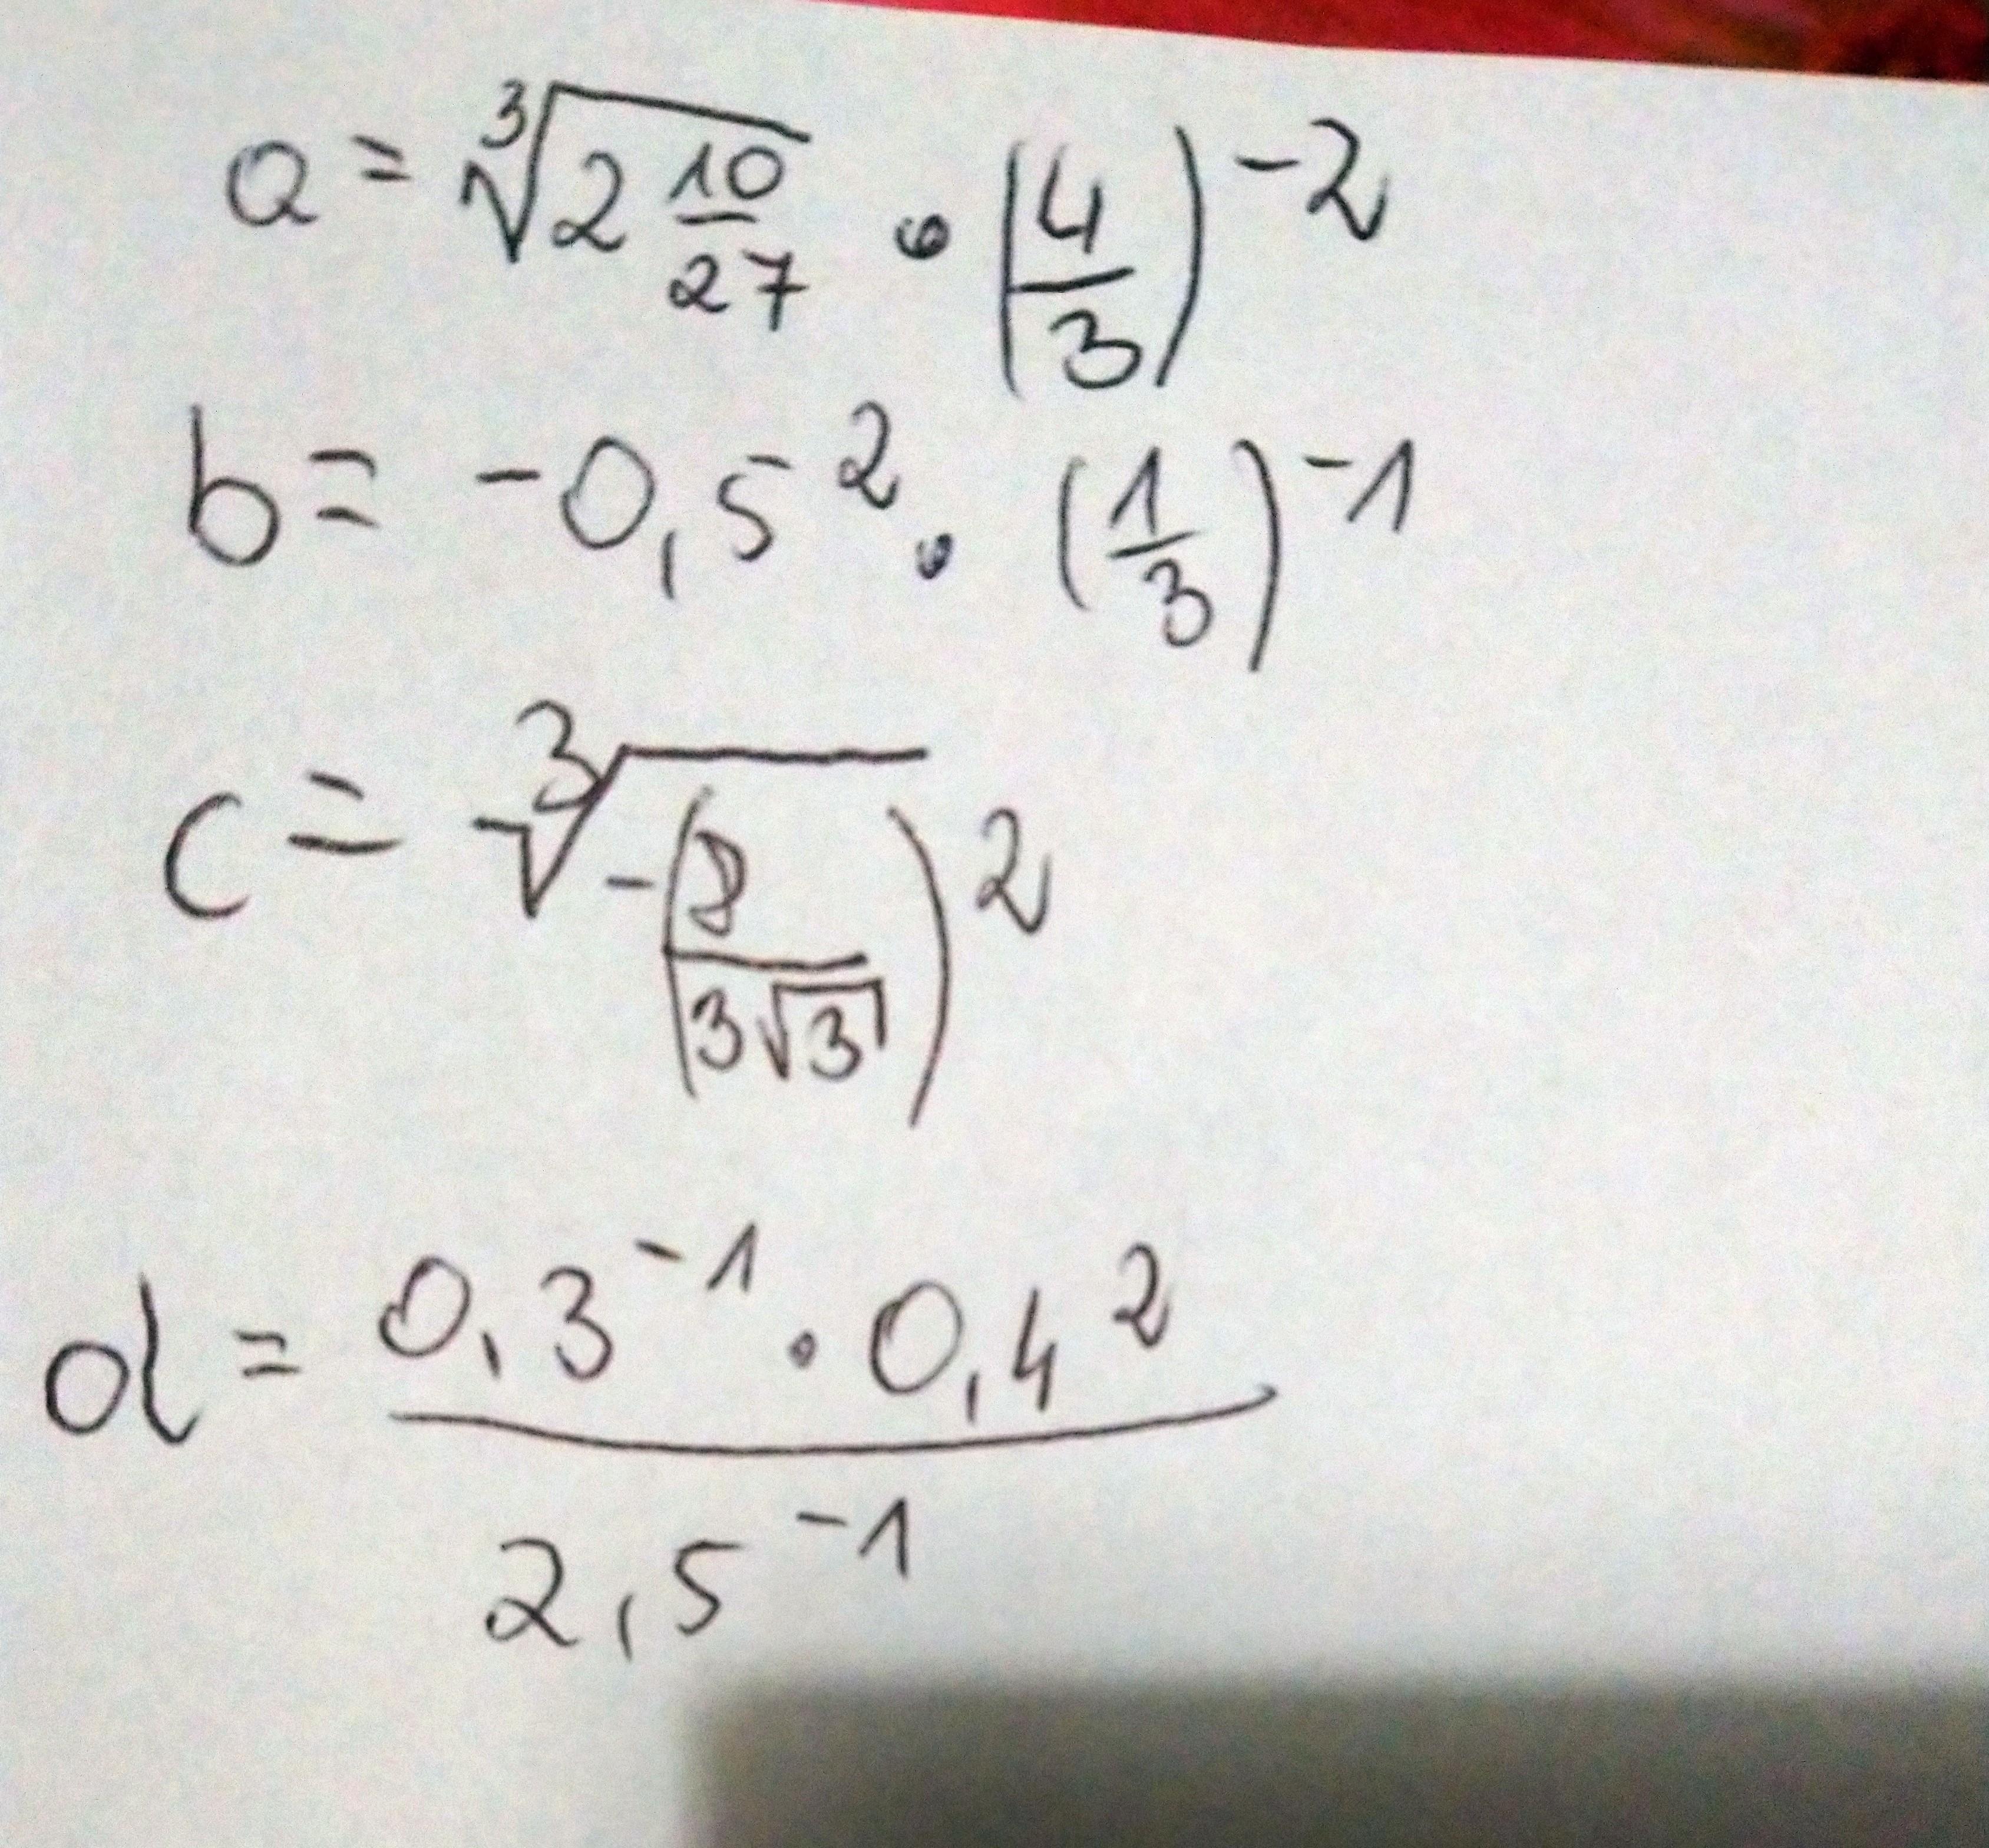 a = ∛(2 10/27) · (4/3)^-2
b = -0,5^2 · (1/3)^-1
c = ∛(-(8/(3√3))^2)
d = (0,3^-1 · 0,4^2)/(2,5^-1)